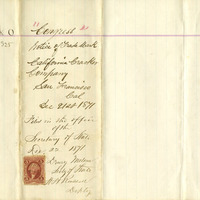 Copyright
Notice of Trade Mark
California Cracker
Company
San Francisco
Cal
Dec 21st 1871
Filed in the office
of the
Secretary of State
Dec. 22 1871
Drury Melone
Secy of State
Deputy